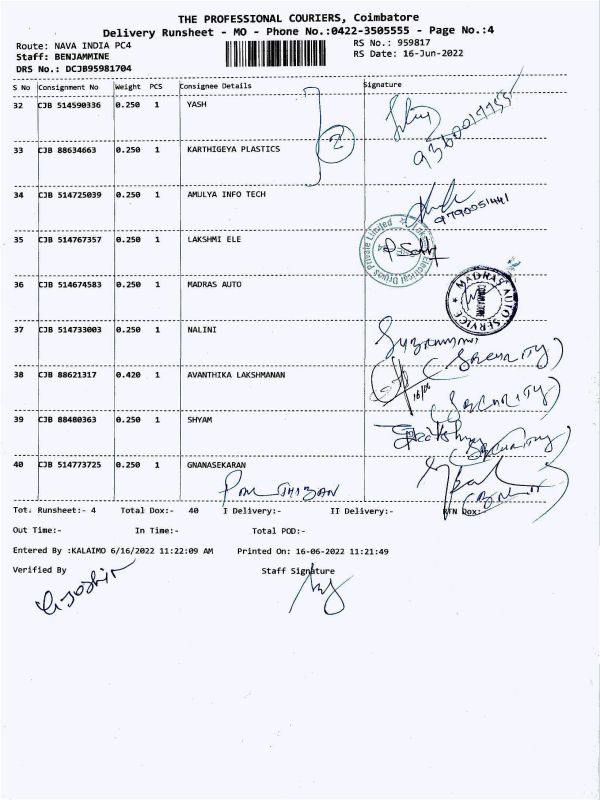 THE PROFESSIONAL COURIERS, Coimbatore
Delivery Runsheet - MO - Phone No.:0422-3505555 - Page No.:4
Route: NAVA INDIA PC4
RS No.: 959817
Staff: BENJAMMINE
RS Date: 16-Jun-2022
DRS No.: DCJB95981704
S No Consignment No Weight PCS Consignee Details Signature
32 CJB 514590336 0.250 1 YASH
33 CJB 88634663 0.250 1 KARTHIGEYA PLASTICS
2
34 CJB 514725039 0.250 1 AMULYA INFO TECH
9790051441
35 CJB 514767357 0.250 1 LAKSHMI ELE
Electrical Drives Private Limited
36 CJB 514674583 0.250 1 MADRAS AUTO
MADRAS AUTO SERVICE
COIMBATORE
37 CJB 514733003 0.250 1 NALINI
(Security)
38 CJB 88621317 0.420 1 AVANTHIKA LAKSHMANAN
16/06
(Security)
39 CJB 88480363 0.250 1 SHYAM
(Security)
40 CJB 514773725 0.250 1 GNANASEKARAN
Tot. Runsheet:- 4 Total Dox:- 40 I Delivery:- II Delivery:- RTN Dox:-
Out Time:- In Time:- Total POD:-
Entered By :KALAIMO 6/16/2022 11:22:09 AM Printed On: 16-06-2022 11:21:49
Verified By Staff Signature